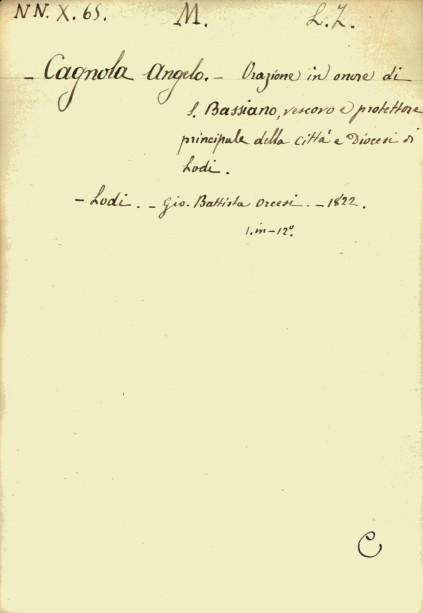 NN. X. 65. M. L. Z.
- Cagnola Angelo. - Orazione in onore di
S. Bassiano, vescovo e protettore
principale della Città e Diocesi di
Lodi.
- Lodi. - Gio. Battista Orcesi. - 1822.
1. in - 12º.
C